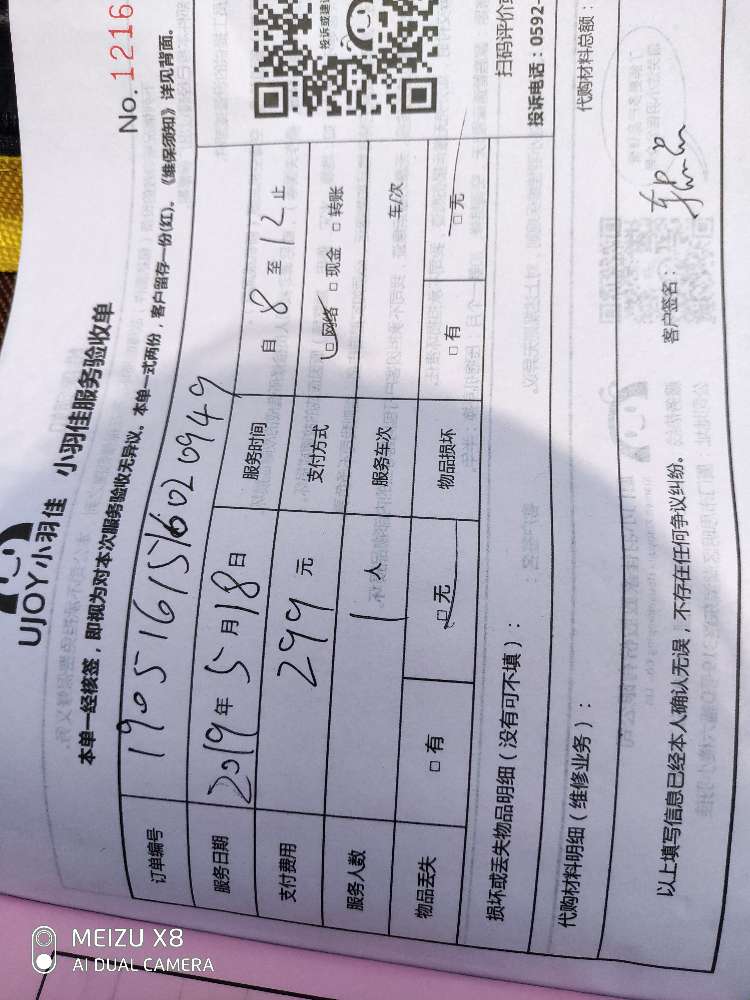 UJOY小羽佳 小羽佳服务验收单
No. 1216
本单一经核签，即视为对本次服务验收无异议。本单一式两份，客户留存一份(红)。《维保须知》详见背面。
订单编号 1905161516020949
服务日期 2019年5月18日 服务时间 自 8 至 12 止
支付费用 299 元 支付方式 □网络 □现金 □转账
服务人数 1 人 服务车次 车/次
物品丢失 □有 □无 物品损坏 □有 □无
损坏或丢失物品明细（没有可不填）：
投诉或建
扫码评价或
投诉电话：0592-
代购材料明细（维修业务）：
代购材料总额：
以上填写信息已经本人确认无误，不存在任何争议纠纷。 客户签名：
MEIZU X8
AI DUAL CAMERA